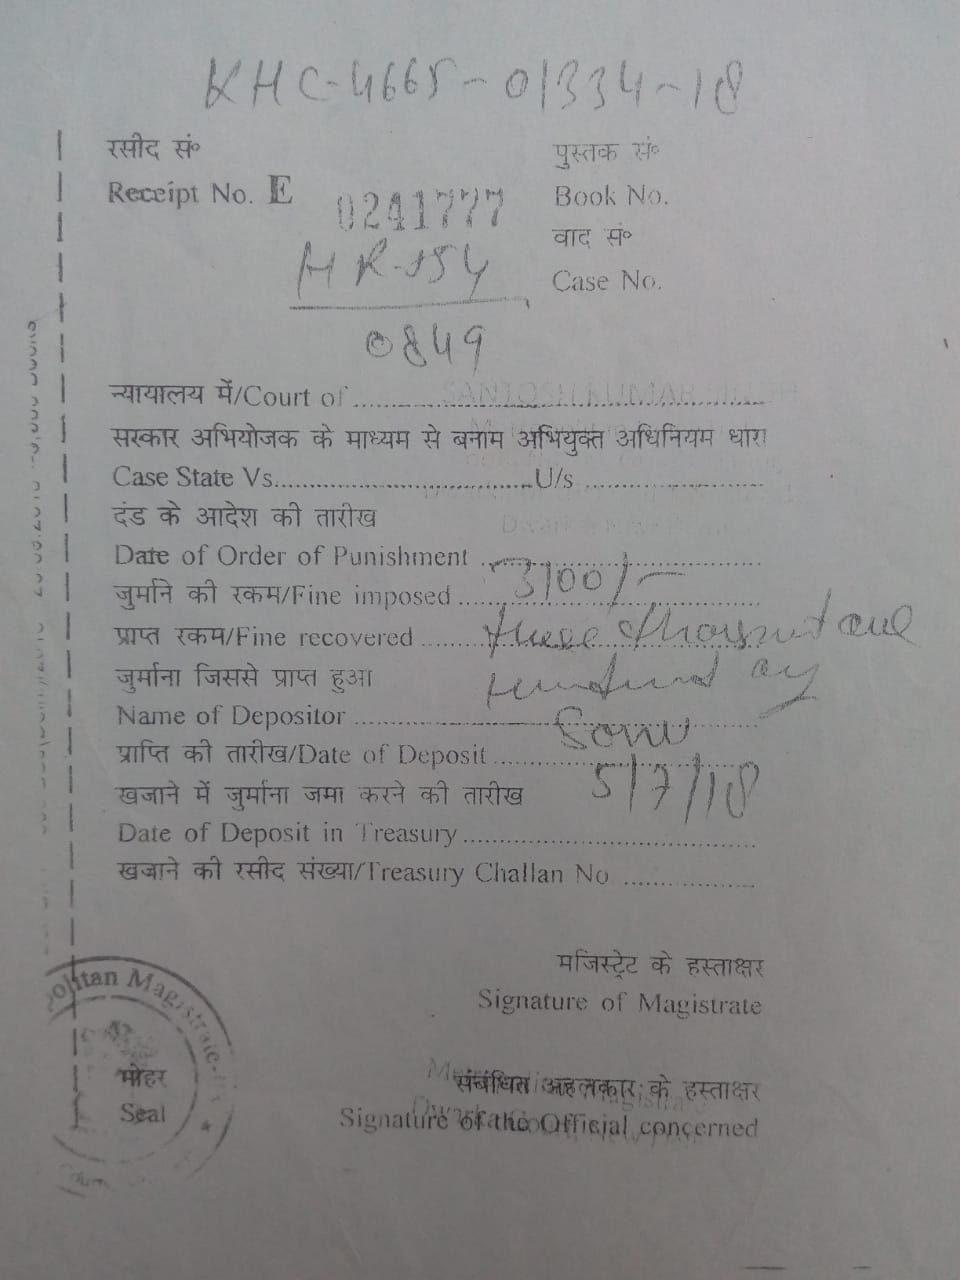 KHC-4665-01334-18
रसीद सं॰ पुस्तक सं॰
Receipt No. E 0241777 Book No.
वाद सं॰
HR-154 Case No.
0849
न्यायालय में/Court of SANTOSH KUMAR SINGH
सरकार अभियोजक के माध्यम से बनाम अभियुक्त अधिनियम धारा
Case State Vs. U/s
दंड के आदेश की तारीख
Date of Order of Punishment
जुर्माने की रकम/Fine imposed 3100/-
प्राप्त रकम/Fine recovered three thousand one
जुर्माना जिससे प्राप्त हुआ hundred
Name of Depositor Sonu
प्राप्ति की तारीख/Date of Deposit 5/7/18
खजाने में जुर्माना जमा करने की तारीख
Date of Deposit in Treasury
खजाने की रसीद संख्या/Treasury Challan No
मजिस्ट्रेट के हस्ताक्षर
Signature of Magistrate
संबंधित अहलकार के हस्ताक्षर
Signature of the Official concerned
politan Magistrate
मोहर
Seal